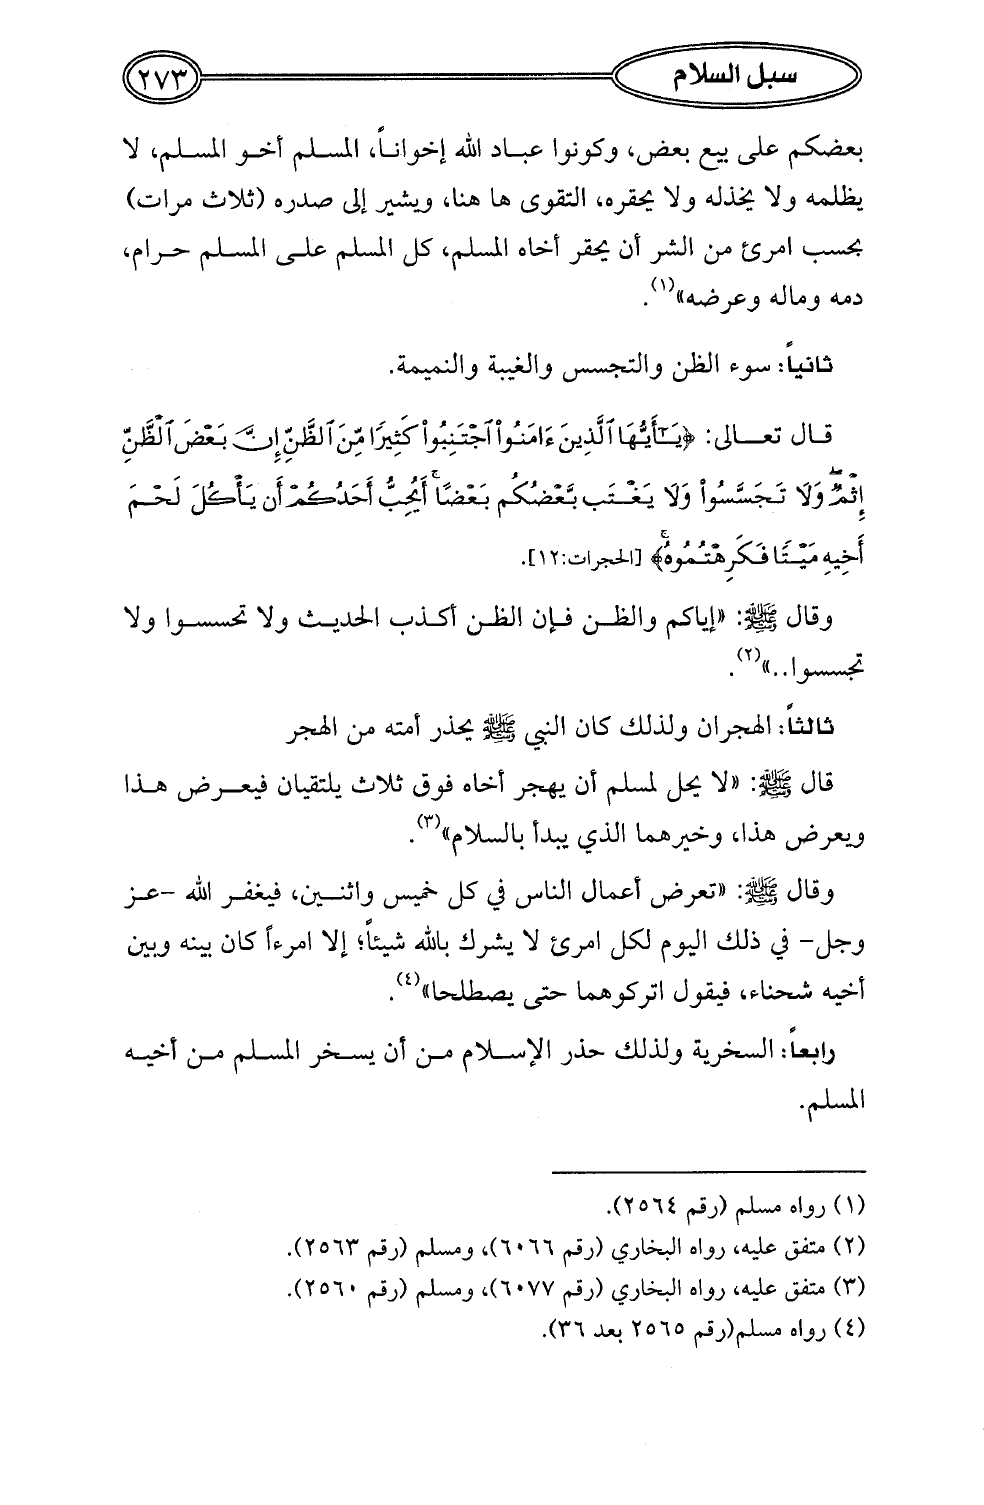 سبل السلام
٢٧٣
بعضكم على بيع بعض، وكونوا عبـاد الله إخواناً، المسلم أخـو المسلم، لا
يظلمه ولا يخذله ولا يحقره، التقوى ها هنا، ويشير إلى صدره (ثلاث مرات)
بحسب امرئ من الشر أن يحقر أخاه المسلم، كل المسلم علـى المسلم حـرام،
دمه وماله وعرضه»(١).
ثانياً: سوء الظن والتجسس والغيبة والنميمة.
قـال تعـــالى: ﴿يَـٰٓأَيُّهَا ٱلَّذِينَ ءَامَنُوا۟ ٱجْتَنِبُوا۟ كَثِيرًا مِّنَ ٱلظَّنِّ إِنَّ بَعْضَ ٱلظَّنِّ
إِثْمٌ ۖ وَلَا تَجَسَّسُوا۟ وَلَا يَغْتَب بَّعْضُكُم بَعْضًا ۚ أَيُحِبُّ أَحَدُكُمْ أَن يَأْكُلَ لَحْمَ
أَخِيهِ مَيْتًا فَكَرِهْتُمُوهُ ۚ﴾ [الحجرات:١٢].
وقال ﷺ: «إياكم والظــن فـإن الظـن أكـذب الحديـث ولا تحسسـوا ولا
تجسسوا..»(٢).
ثالثاً: الهجران ولذلك كان النبي ﷺ يحذر أمته من الهجر
قال ﷺ: «لا يحل لمسلم أن يهجر أخاه فوق ثلاث يلتقيان فيعـرض هـذا
ويعرض هذا، وخيرهما الذي يبدأ بالسلام»(٣).
وقال ﷺ: «تعرض أعمال الناس في كل خميس واثنـين، فيغفـر الله -عـز
وجل- في ذلك اليوم لكل امرئ لا يشرك بالله شيئاً؛ إلا امرءاً كان بينه وبين
أخيه شحناء، فيقول اتركوهما حتى يصطلحا»(٤).
رابعاً: السخرية ولذلك حذر الإسـلام مـن أن يسـخر المسـلم مـن أخيـه
المسلم.
(١) رواه مسلم (رقم ٢٥٦٤).
(٢) متفق عليه، رواه البخاري (رقم ٦٠٦٦)، ومسلم (رقم ٢٥٦٣).
(٣) متفق عليه، رواه البخاري (رقم ٦٠٧٧)، ومسلم (رقم ٢٥٦٠).
(٤) رواه مسلم(رقم ٢٥٦٥ بعد ٣٦).